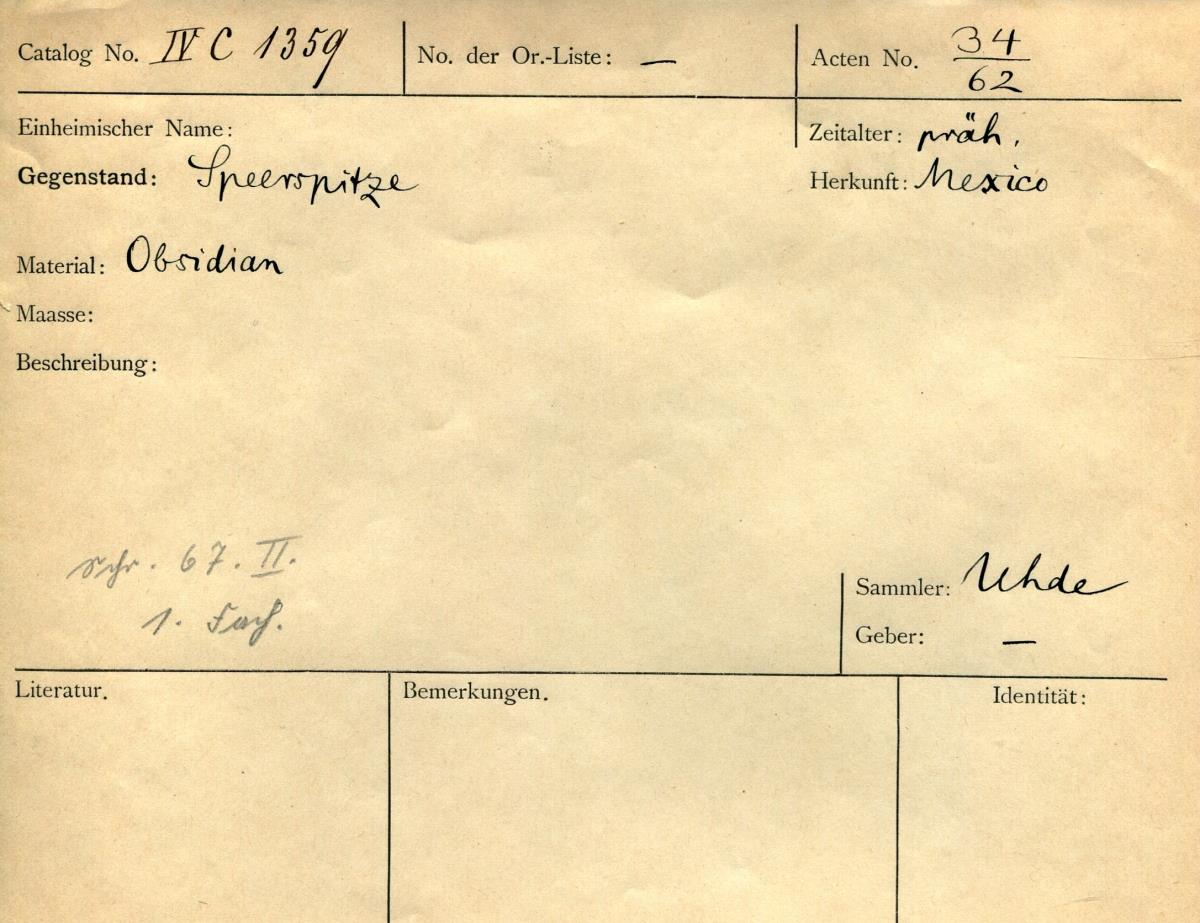 Catalog No. IV C 1359 No. der Or.-Liste: — Acten No. 34/62
Einheimischer Name: Zeitalter: präh.
Gegenstand: Speerspitze Herkunft: Mexico
Material: Obsidian
Maasse:
Beschreibung:
Schr. 67. II.
1. Fach.
Sammler: Uhde
Geber: —
Literatur. Bemerkungen. Identität: